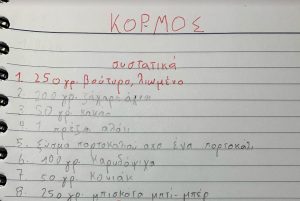 ΚΟΡΜΟΣ
συστατικά
1. 250 γρ. βούτυρο, λιωμένο
2. 200 γρ. ζάχαρη άχνη
3. 50 γρ. κακάο
4. 1 πρέζα αλάτι
5. ξύσμα πορτοκαλιού, από ένα πορτοκάλι
6. 100 γρ. καρυδόψιχα
7. 50 γρ. κονιάκ
8. 250 γρ. μπισκότα πτι-μπερ